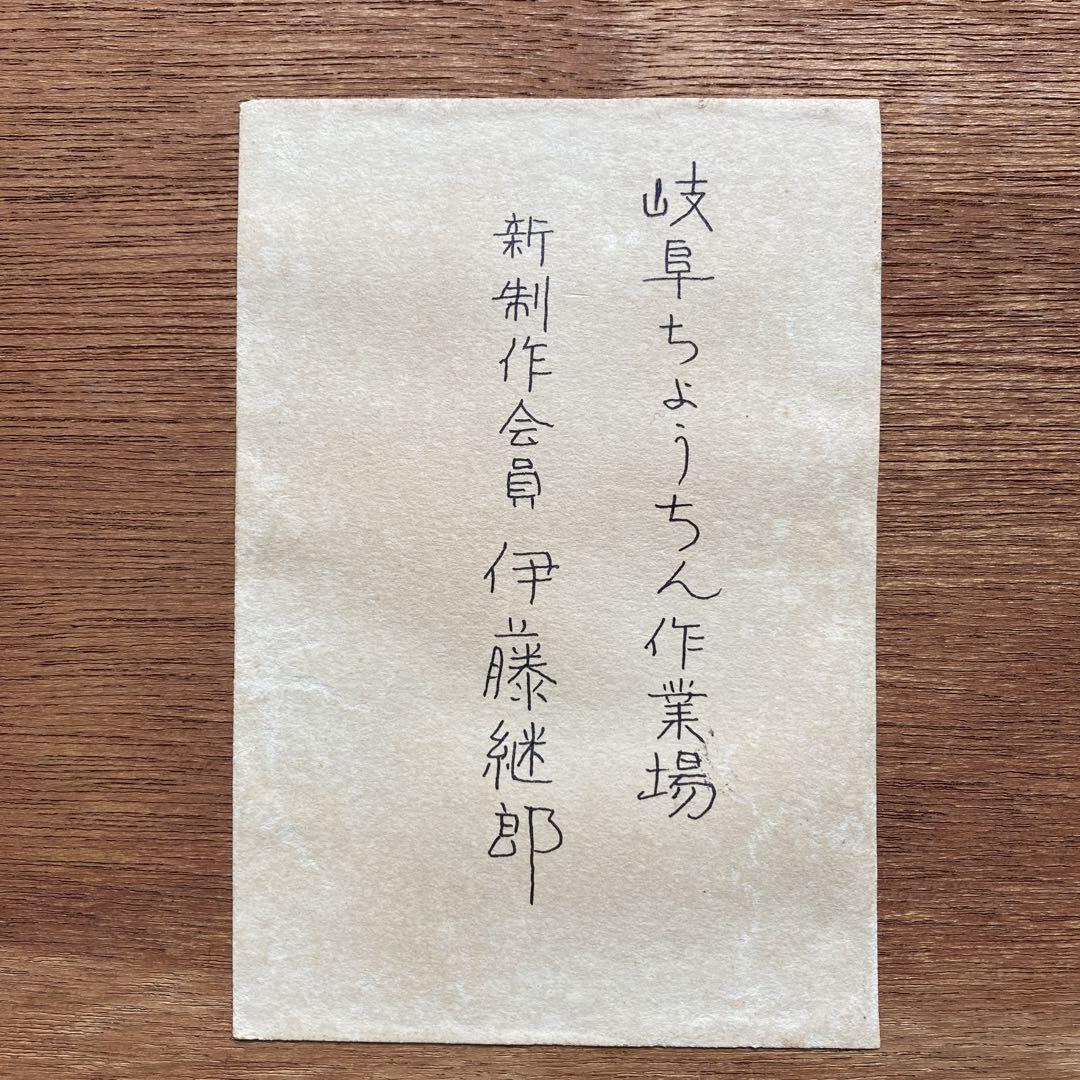 岐阜ちょうちん作業場
新制作会員 伊藤継郎